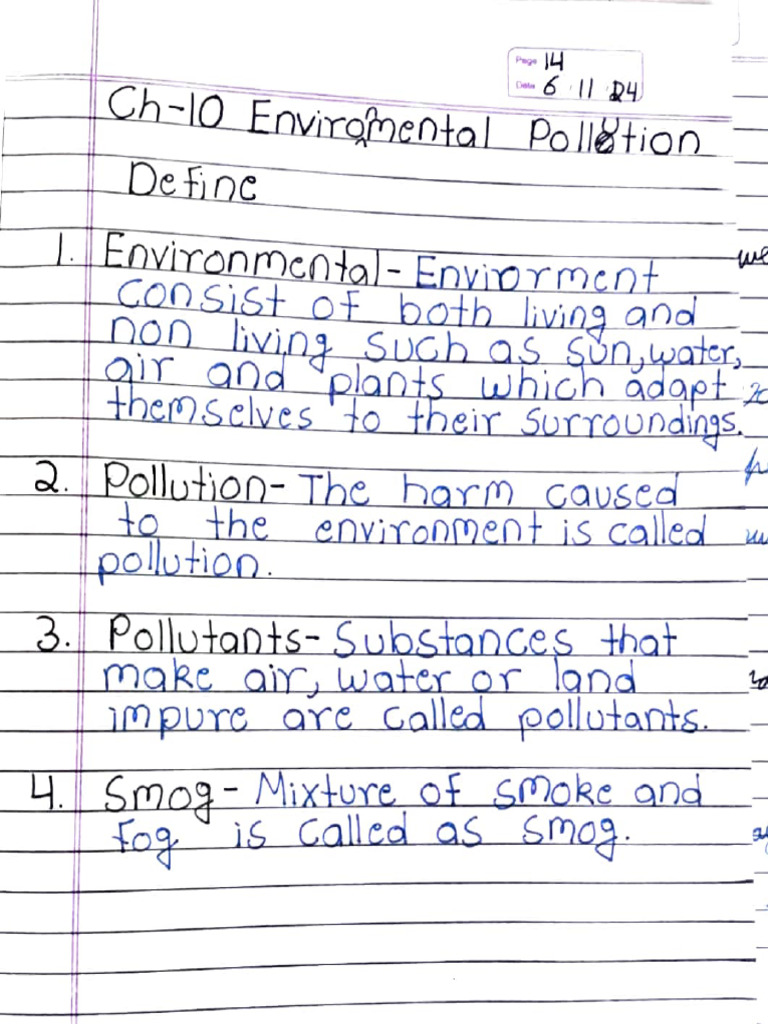 Page 14
Date 6 11 24
Ch-10 Enviromental Pollution
Define
1. Environmental - Enviorment
consist of both living and
non living such as sun, water,
air and plants which adapt
themselves to their surroundings.
2. Pollution - The harm caused
to the environment is called
pollution.
3. Pollutants - Substances that
make air, water or land
impure are called pollutants.
4. Smog - Mixture of smoke and
fog is called as smog.